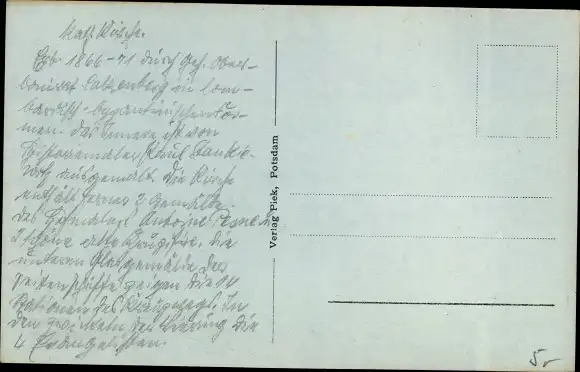 Kath. Kirche.
Erb. 1866-71 durch Geh. Ober-
baurat Salzenberg in lom-
bardisch-byzantinischen For-
men. Das Innere ist von
Historienmaler Paul Stankie-
witz ausgemalt. Die Kirche
enthält ferner 3 Gemälde
des Hofmalers Antoine Pesne
schöne alte Kruzifixe, die
unteren Glasgemälde der
Seitenschiffe zeigen die 14
Stationen des Kreuzwegs. In
den Zwickeln der Vierung die
4 Evangelisten.
Verlag Piek, Potsdam
5,-